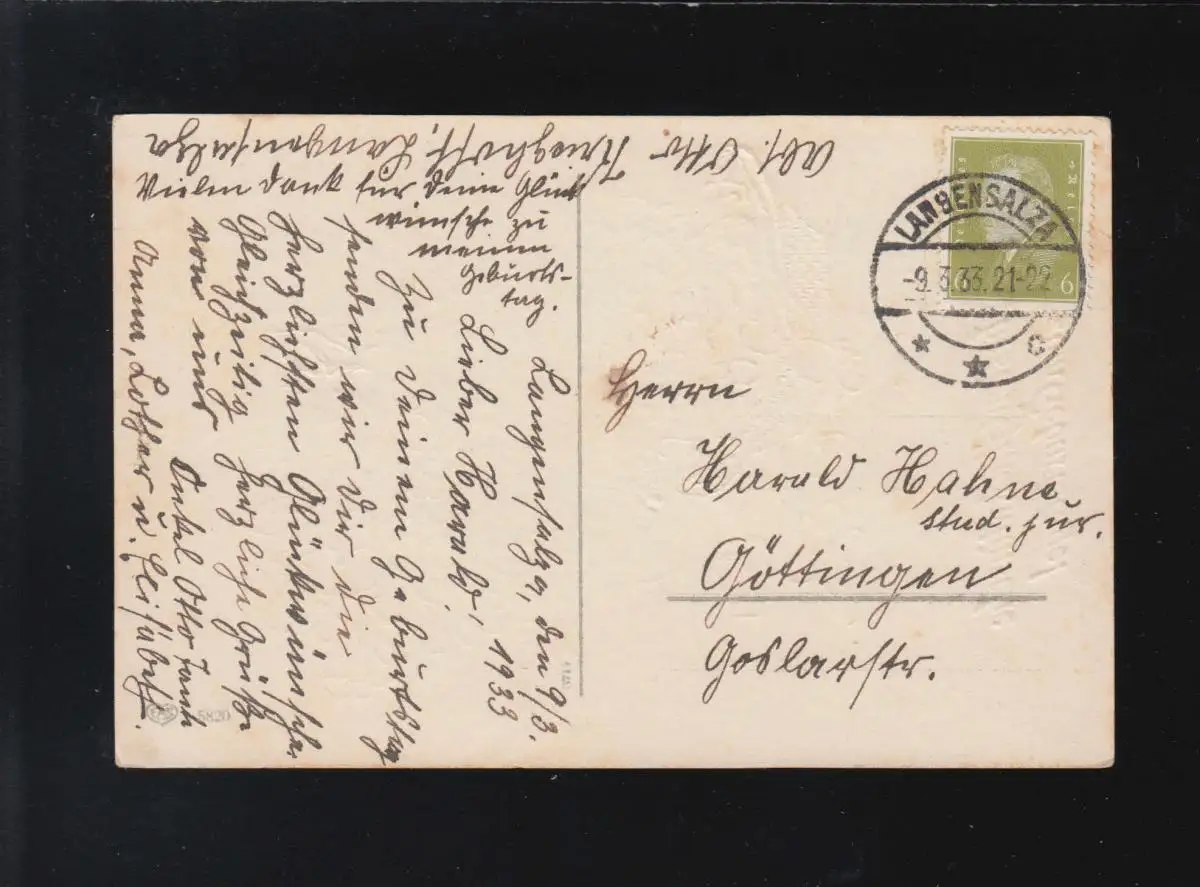 Abs. Otto
Krieghoff, Langensalza
Langensalza, den 9/3.
1933
Lieber Harald,
Zu deinem Geburtstag
senden wir dir die
herzlichsten Glückwünsche
Gleichzeitig herzliche Grüße
von uns Onkel Otto Tante
Anna, Lothar u. Elisabeth.
Vielen Dank für deine Glück
wünsche zu
meinem
Geburts-
tag.
LANGENSALZA
-9.3.33.21-22
* * c
6
Herrn
Harald Hahne
stud. jur.
Göttingen
Goslarstr.
5820